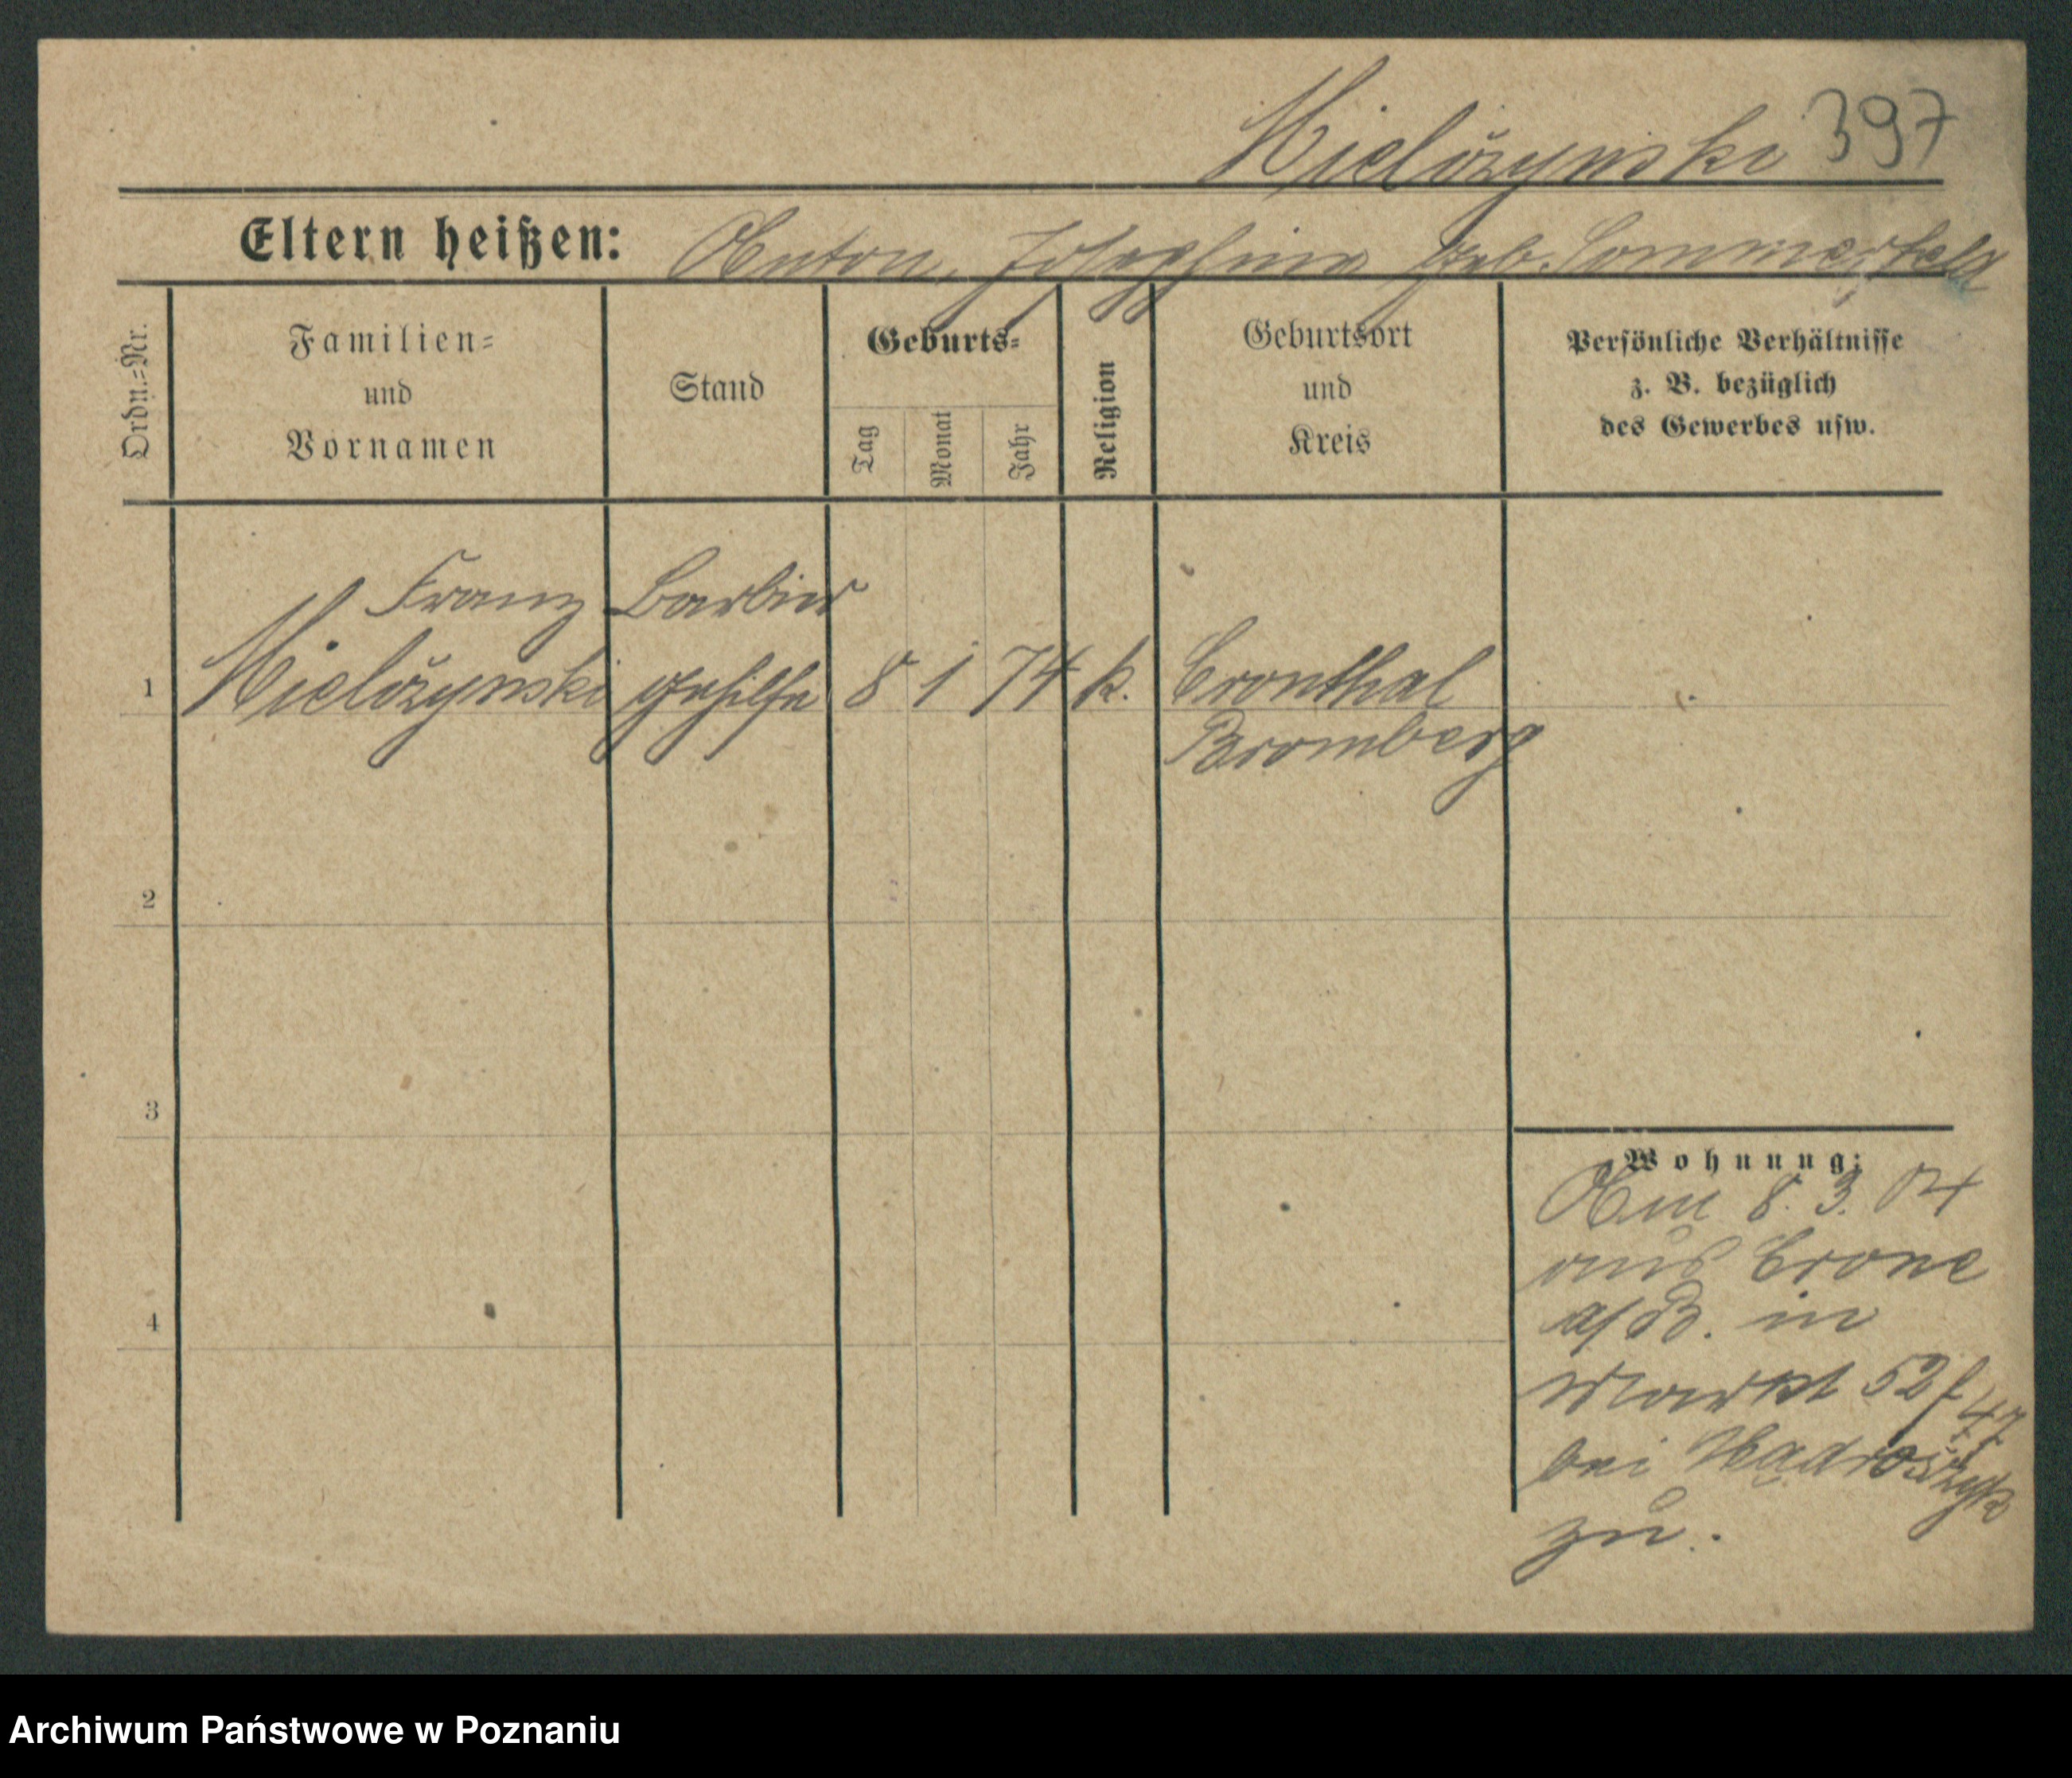 Mielożynski 397
Eltern heißen: Anton, Josephina geb. Sommerfeld
Ordn.=Nr.
Familien=
und
Vornamen
Stand
Geburts=
Tag
Monat
Jahr
Religion
Geburtsort
und
Kreis
Persönliche Verhältnisse
z. B. bezüglich
des Gewerbes usw.
Franz Barbier
1 Mielożynski gehilfe 8 1 74 k. Cronthal
Bromberg
2
3
4
Wohnung:
Am 8. 3. 04
aus Crone
a/B. in
Markt 52/47
bei
zu.
Archiwum Państwowe w Poznaniu